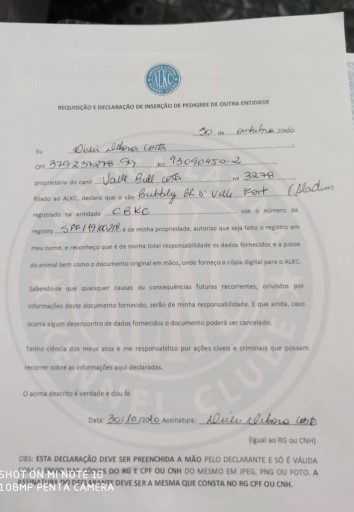 ALKC
REQUISIÇÃO E DECLARAÇÃO DE INSERÇÃO DE PEDIGREE DE OUTRA ENTIDADE
30 de outubro 2020
Eu Dirceu Debora Costa
CPF RG 43090450-2
proprietário do canil Valle Bull Costa nº 3278
filiado ao ALKC, declaro que o cão Bubbly Br D' Valle Fort (Aladim
registrado na entidade CBKC sob o número de
registro é de minha propriedade, autorizo que seja feito o registro em
meu nome, e reconheço que é de minha total responsabilidade os dados fornecidos e a posse
do animal bem como o documento original em mãos, onde forneço a cópia digital para o ALKC.
Sabendo-se que quaisquer causas ou consequências futuras recorrentes, oriundos por
informações deste documento fornecido, serão de minha responsabilidade. E que ainda, caso
ocorra algum desencontro de dados fornecidos o documento poderá ser cancelado.
Tenho ciência dos meus atos e me responsabilizo por ações cíveis e criminais que possam
recorrer sobre as informações aqui declaradas.
O acima descrito é verdade e dou fé
Data: 30/10/2020 Assinatura:
(igual ao RG ou CNH)
OBS: ESTA DECLARAÇÃO DEVE SER PREENCHIDA A MÃO PELO DECLARANTE E SÓ É VÁLIDA
DO RG E CPF OU CNH DO MESMO EM JPEG, PNG OU FOTO. A
ASSINATURA DO DECLARANTE DEVE SER A MESMA QUE CONSTA NO RG CPF OU CNH.
SHOT ON MI NOTE 10
108MP PENTA CAMERA